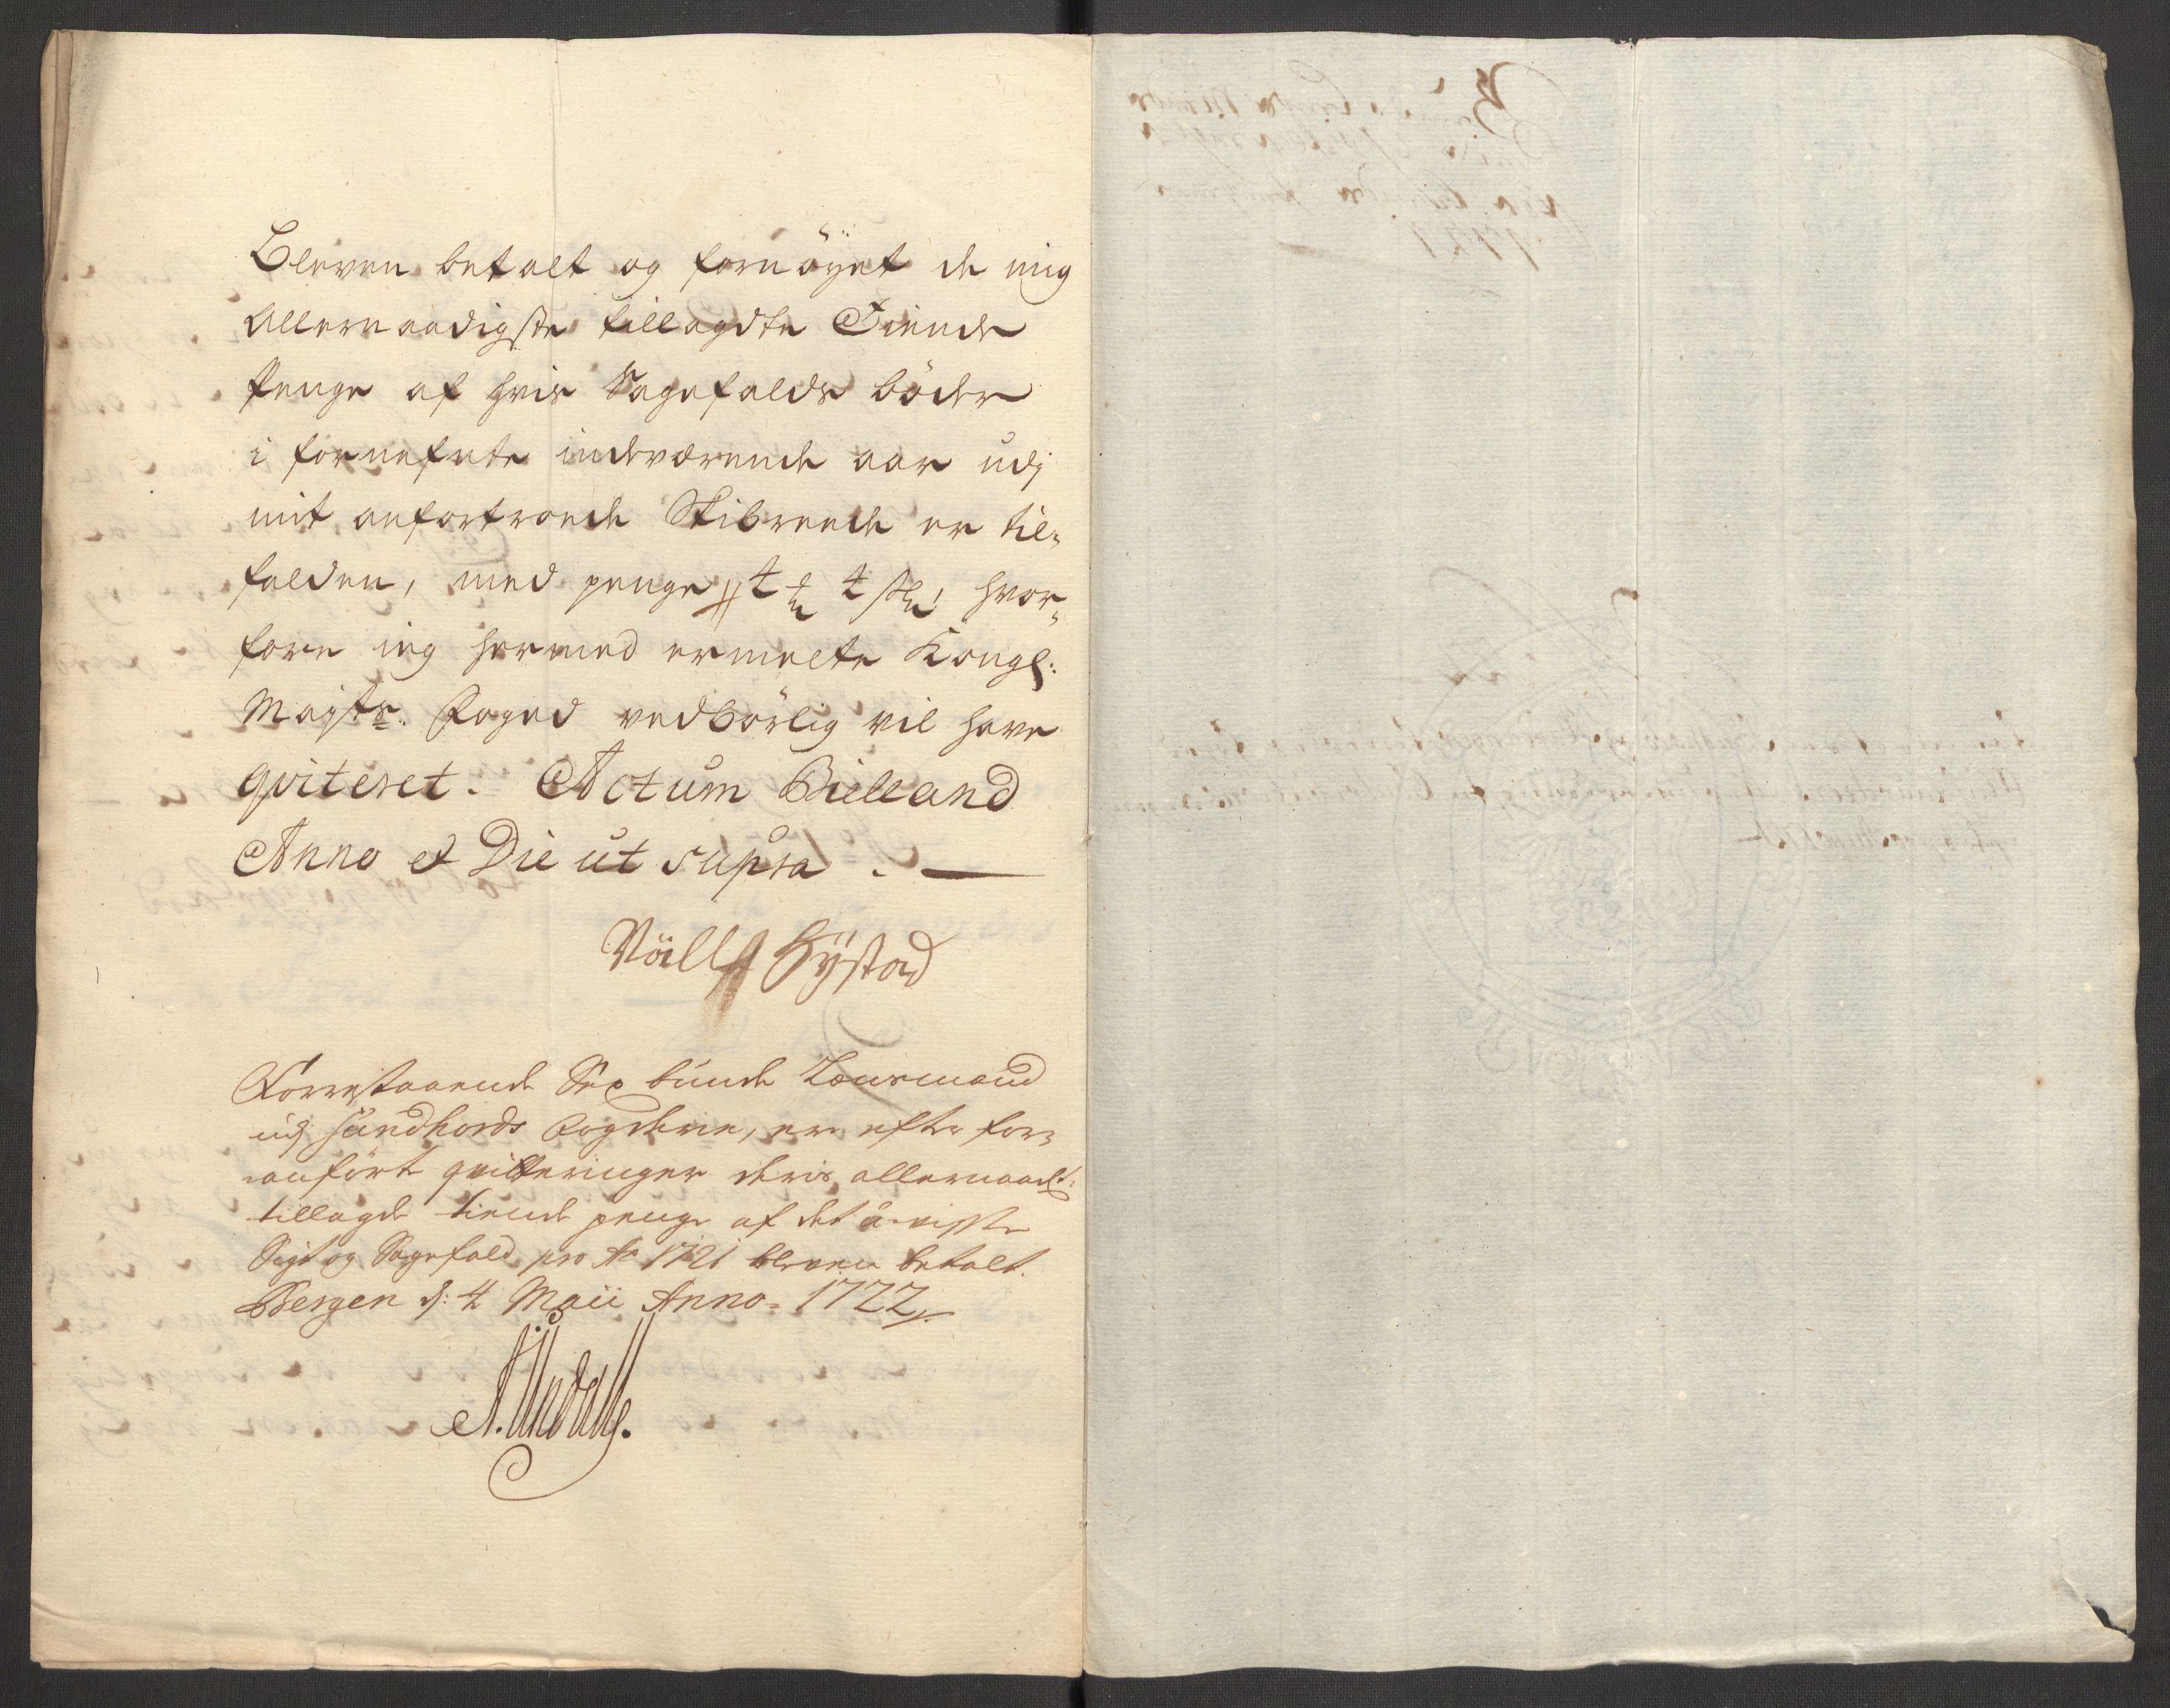 Bleven betalt og fornöyet de mig
Allernaadigste tillagdte Tiende
Penge af hvis Sagefalds böder
i fornefnte indeværende aar udj
mit anfortroede Skibrede er til-
falden, med penge hvor-
fore ieg hermed ermelte Kongl:
Mayts. Foged vedbörlig vil have
qviteret. Actum Bielland
Anno et Die ut supra. —
Hÿstad
Forrestaaende Sex bunde Lensmænd
udj Sundhords fogderie, ere efter for-
anfört qvitteringer deris allernaadt.
tillagde tiende penge af det uvisse
Sigt og Sagefald pro Ao 1721 bleven betalt.
Bergen d: 4 Maii Anno 1722